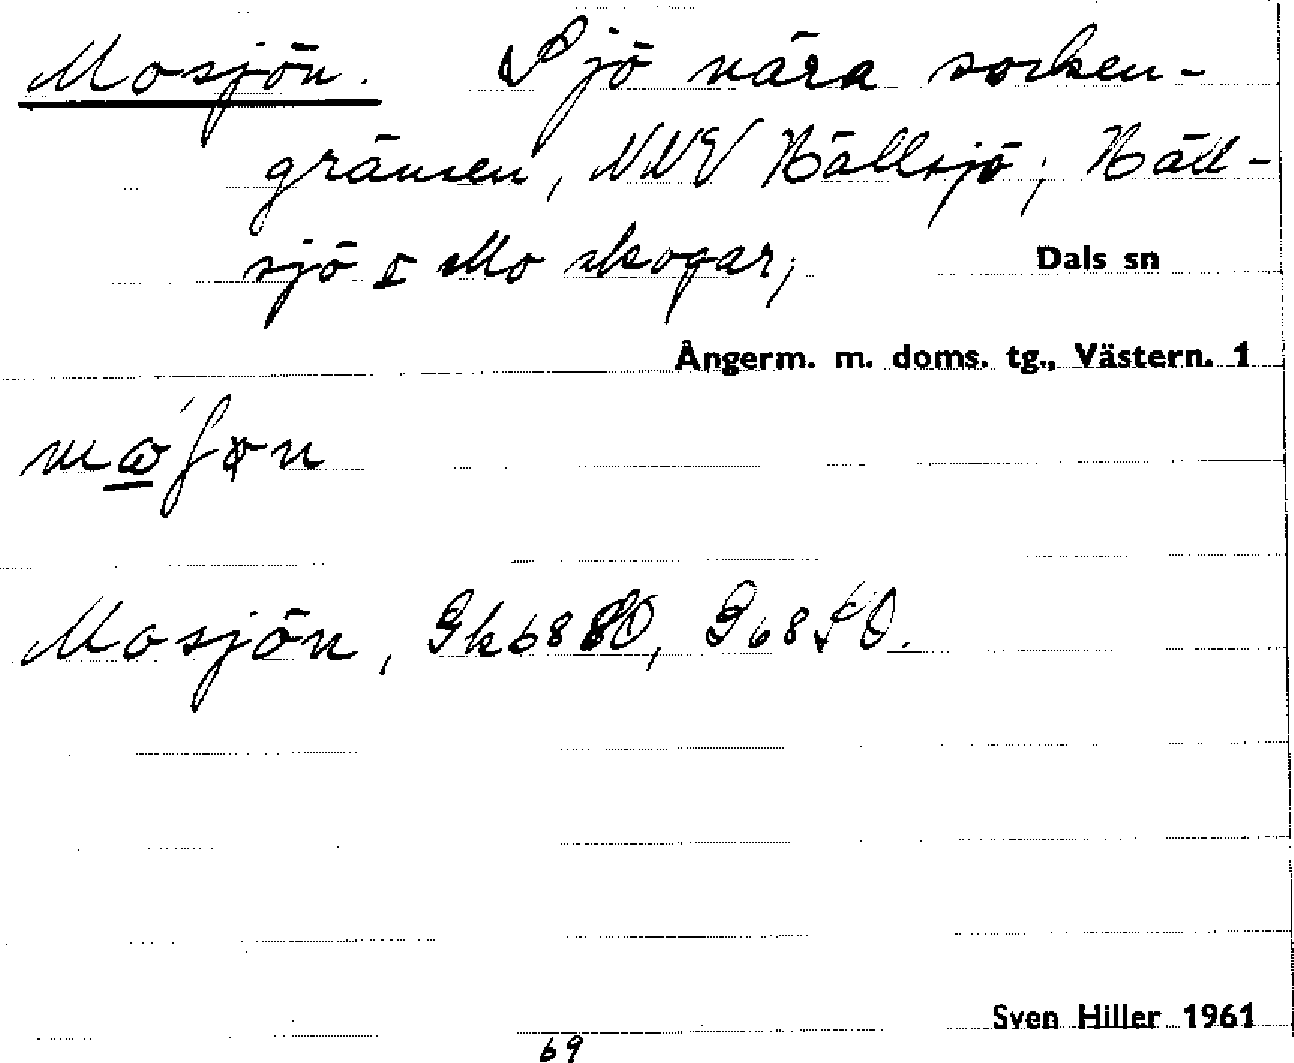 Mosjön. Sjö nära socken-
gränsen, NNV Hällsjö; Häll-
sjö o Mo skogar;
Dals sn
Ångerm. m. doms. tg., Västern. 1
Mosjön, Gk68SO, G68SO.
Sven Hiller 1961
69